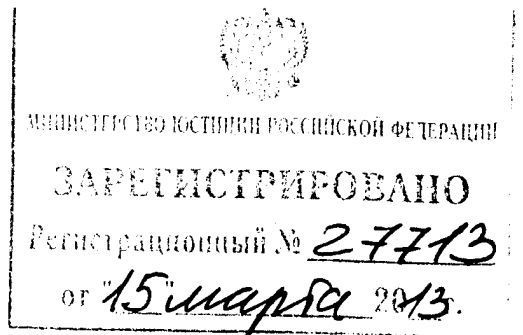 МИНИСТЕРСТВО ЮСТИЦИИ РОССИЙСКОЙ ФЕДЕРАЦИИ
ЗАРЕГИСТРИРОВАНО
Регистрационный № 27713
от "15" марта 2013г.